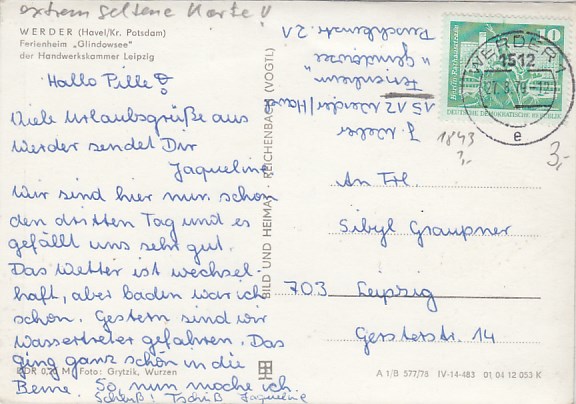 extrem seltene Karte!!
WERDER (Havel/Kr. Potsdam)
Ferienheim „Glindowsee"
der Handwerkskammer Leipzig
Hallo Pille!
Viele Urlaubsgrüße aus
Werder sendet Dir
Jaqueline
Wir sind hier nur schon
den dritten Tag und es
gefällt uns sehr gut.
Das Wetter ist wechsel-
haft, aber baden war ich
schon. Gestern sind wir
Wassertreter gefahren. Das
ging ganz schön in die
Beine. So, nun mache ich
Schluß! Tschüß Jaqueline
DDR 0,20 M Foto: Grytzik, Wurzen
BILD UND HEIMAT · REICHENBACH (VOGTL)
1512 Werder/Havel
Ferienheim
WERDER 1
1512
27.8.79
e
10
Berlin · Rathausstraße
DEUTSCHE DEMOKRATISCHE REPUBLIK
1843
3,-
An Frl.
Sibyl Graupner
703 Leipzig
Gersterstr. 14
A 1/B 577/78 IV-14-483 01 04 12 053 K